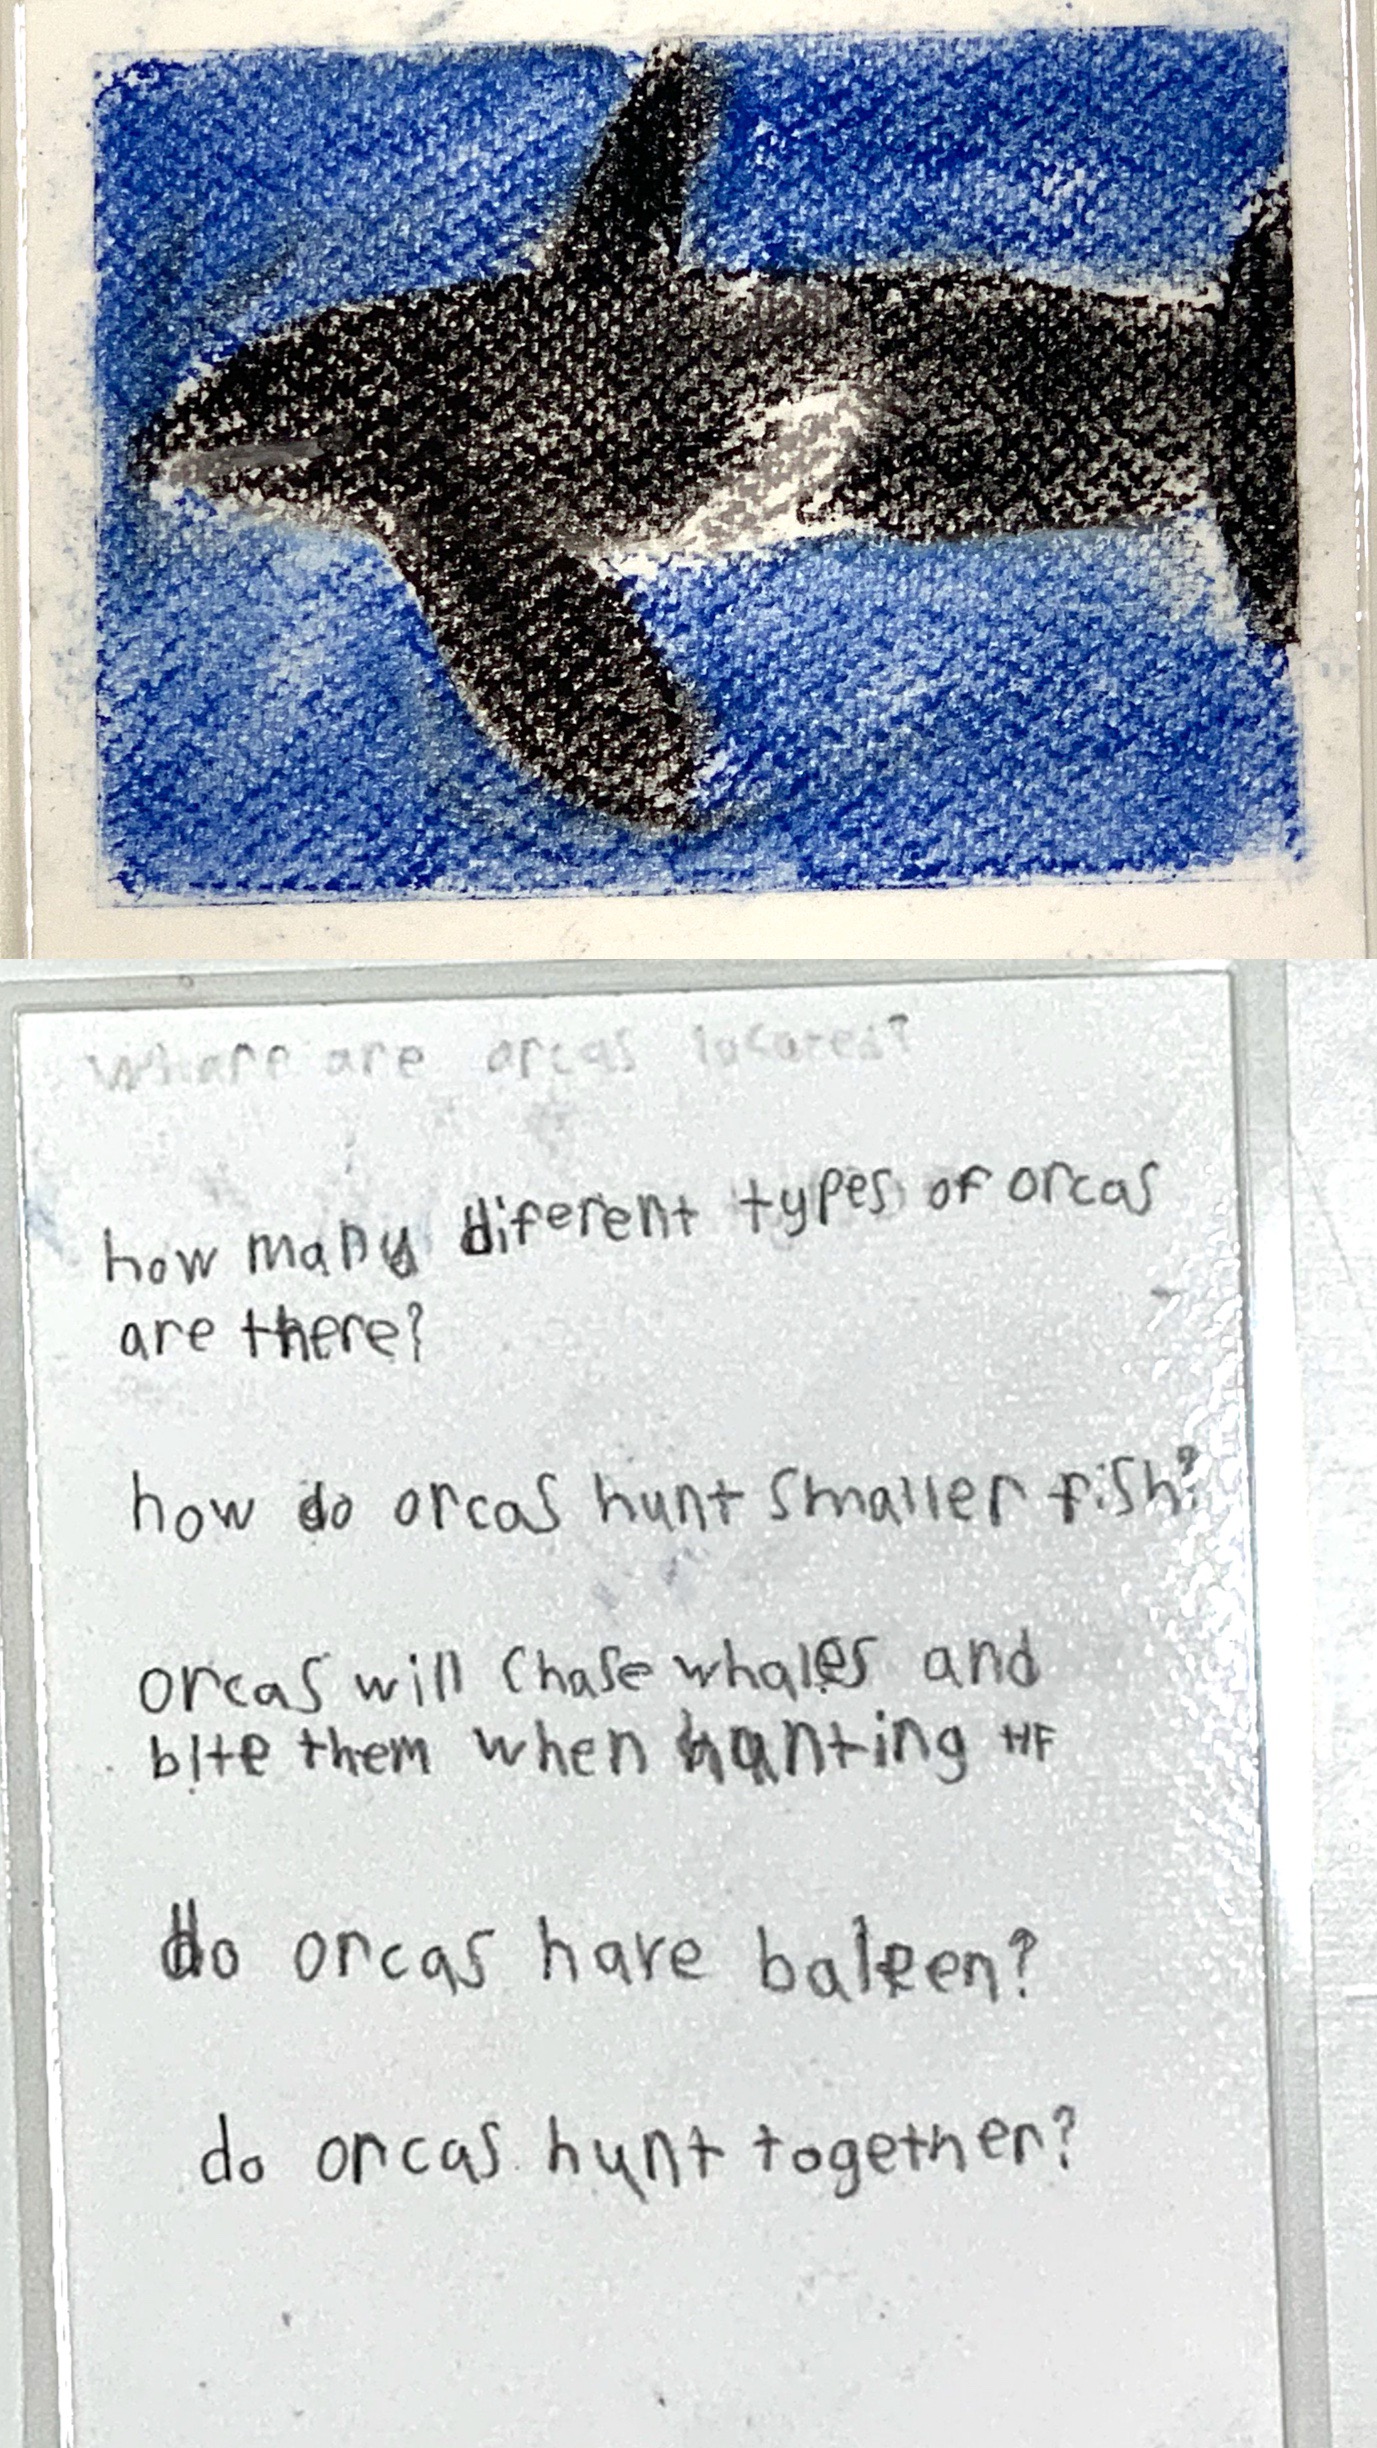 Where are orcas located?
how many diferent types of orcas
are there?
how do orcas hunt smaller fish?
orcas will chase whales and
bite them when hunting HF
do orcas have baleen?
do orcas hunt together?